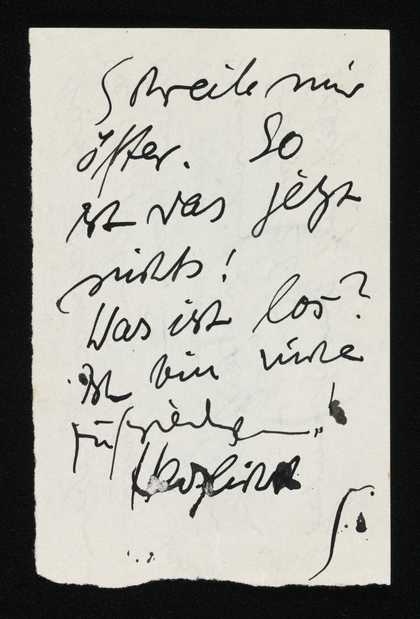 Schreibe mir
öfter. So
ist das jetzt
nichts!
Was ist los?
Ich bin nicht
zufrieden!
Herzlichst